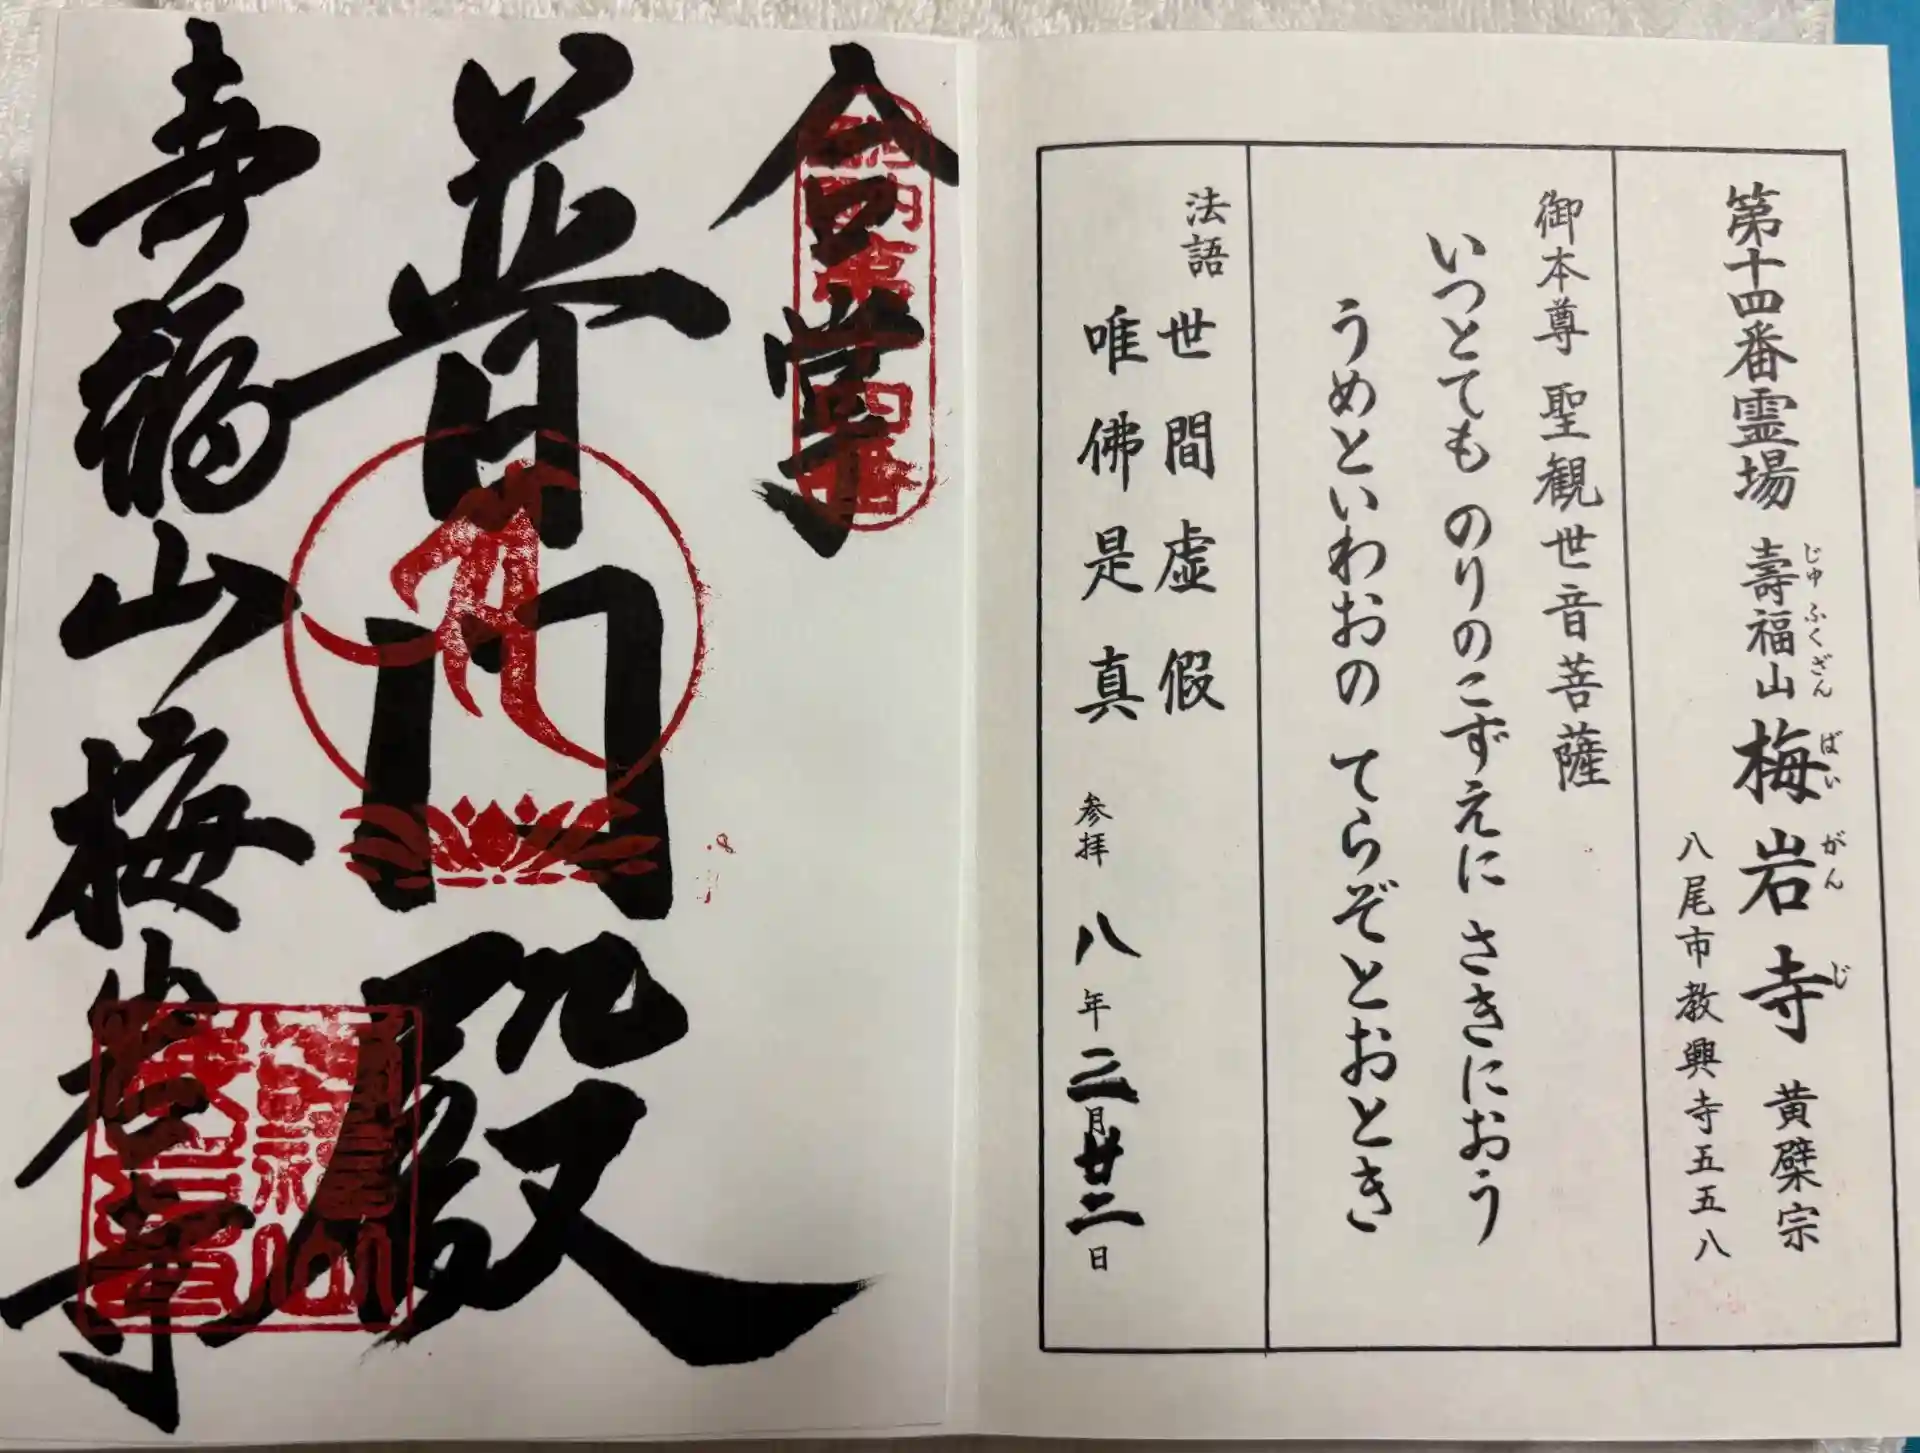 第十四番霊場 壽福山梅岩寺 黄檗宗
じゅふくざんばいがんじ
八尾市教興寺五五八
御本尊 聖観世音菩薩
いつとても のりのこずえに さきにおう
うめといわおの てらぞとおとき
法語 世間虚假
唯佛是真
参拝 八年二月廿二日
合掌
普門殿
壽福山梅岩寺